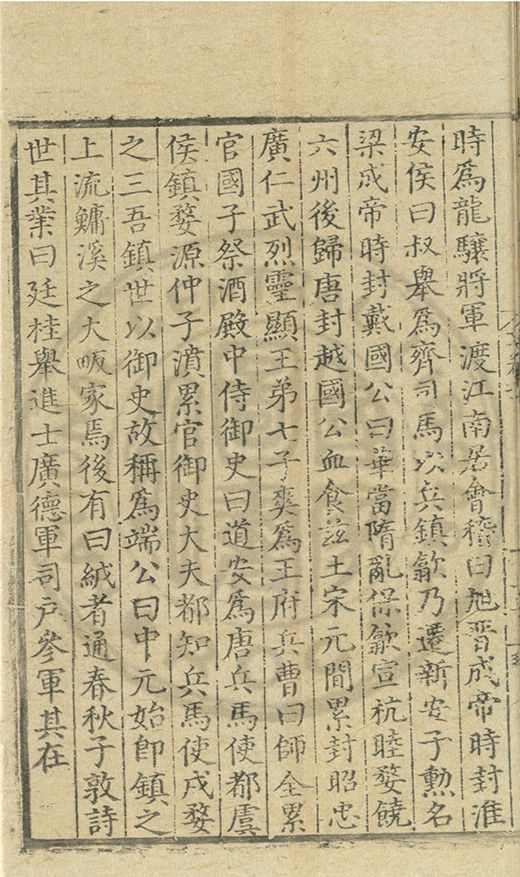 時爲龍驤將軍渡江南居會稽曰旭晋成帝時封淮
安侯曰叔舉爲齊司馬以兵鎮歙乃遷新安子勲名
梁成帝時封戴國公曰華當隋亂保歙宣杭睦婺饒
六州後歸唐封越國公血食兹土宋元間累封昭忠
廣仁武烈靈顯王弟七子爽爲王府兵曹曰師全累
官國子祭酒殿中侍御史曰道安爲唐兵馬使都虞
侯鎮婺源仲子濆累官御史大夫都知兵馬使戍婺
之三吾鎮世以御史故稱爲端公曰中元始卽鎮之
上流鱅溪之大畈家焉後有曰絨者通春秋子敦詩
世其業曰廷桂舉進士廣德軍司戶參軍其在